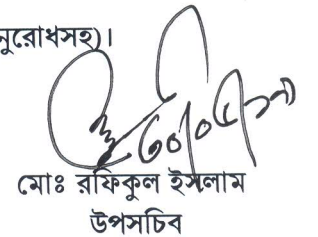 নুরোধসহ)।
মোঃ রফিকুল ইসলাম
উপসচিব